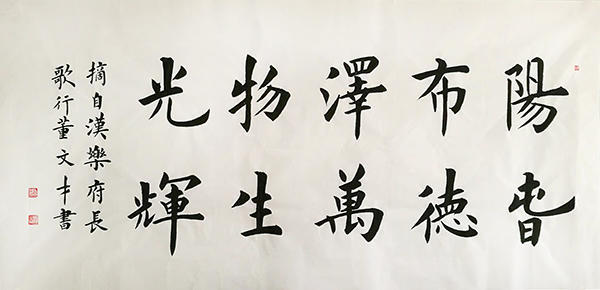 陽旾
布德
澤萬
物生
光輝
摘自漢樂府長
歌行董文才書